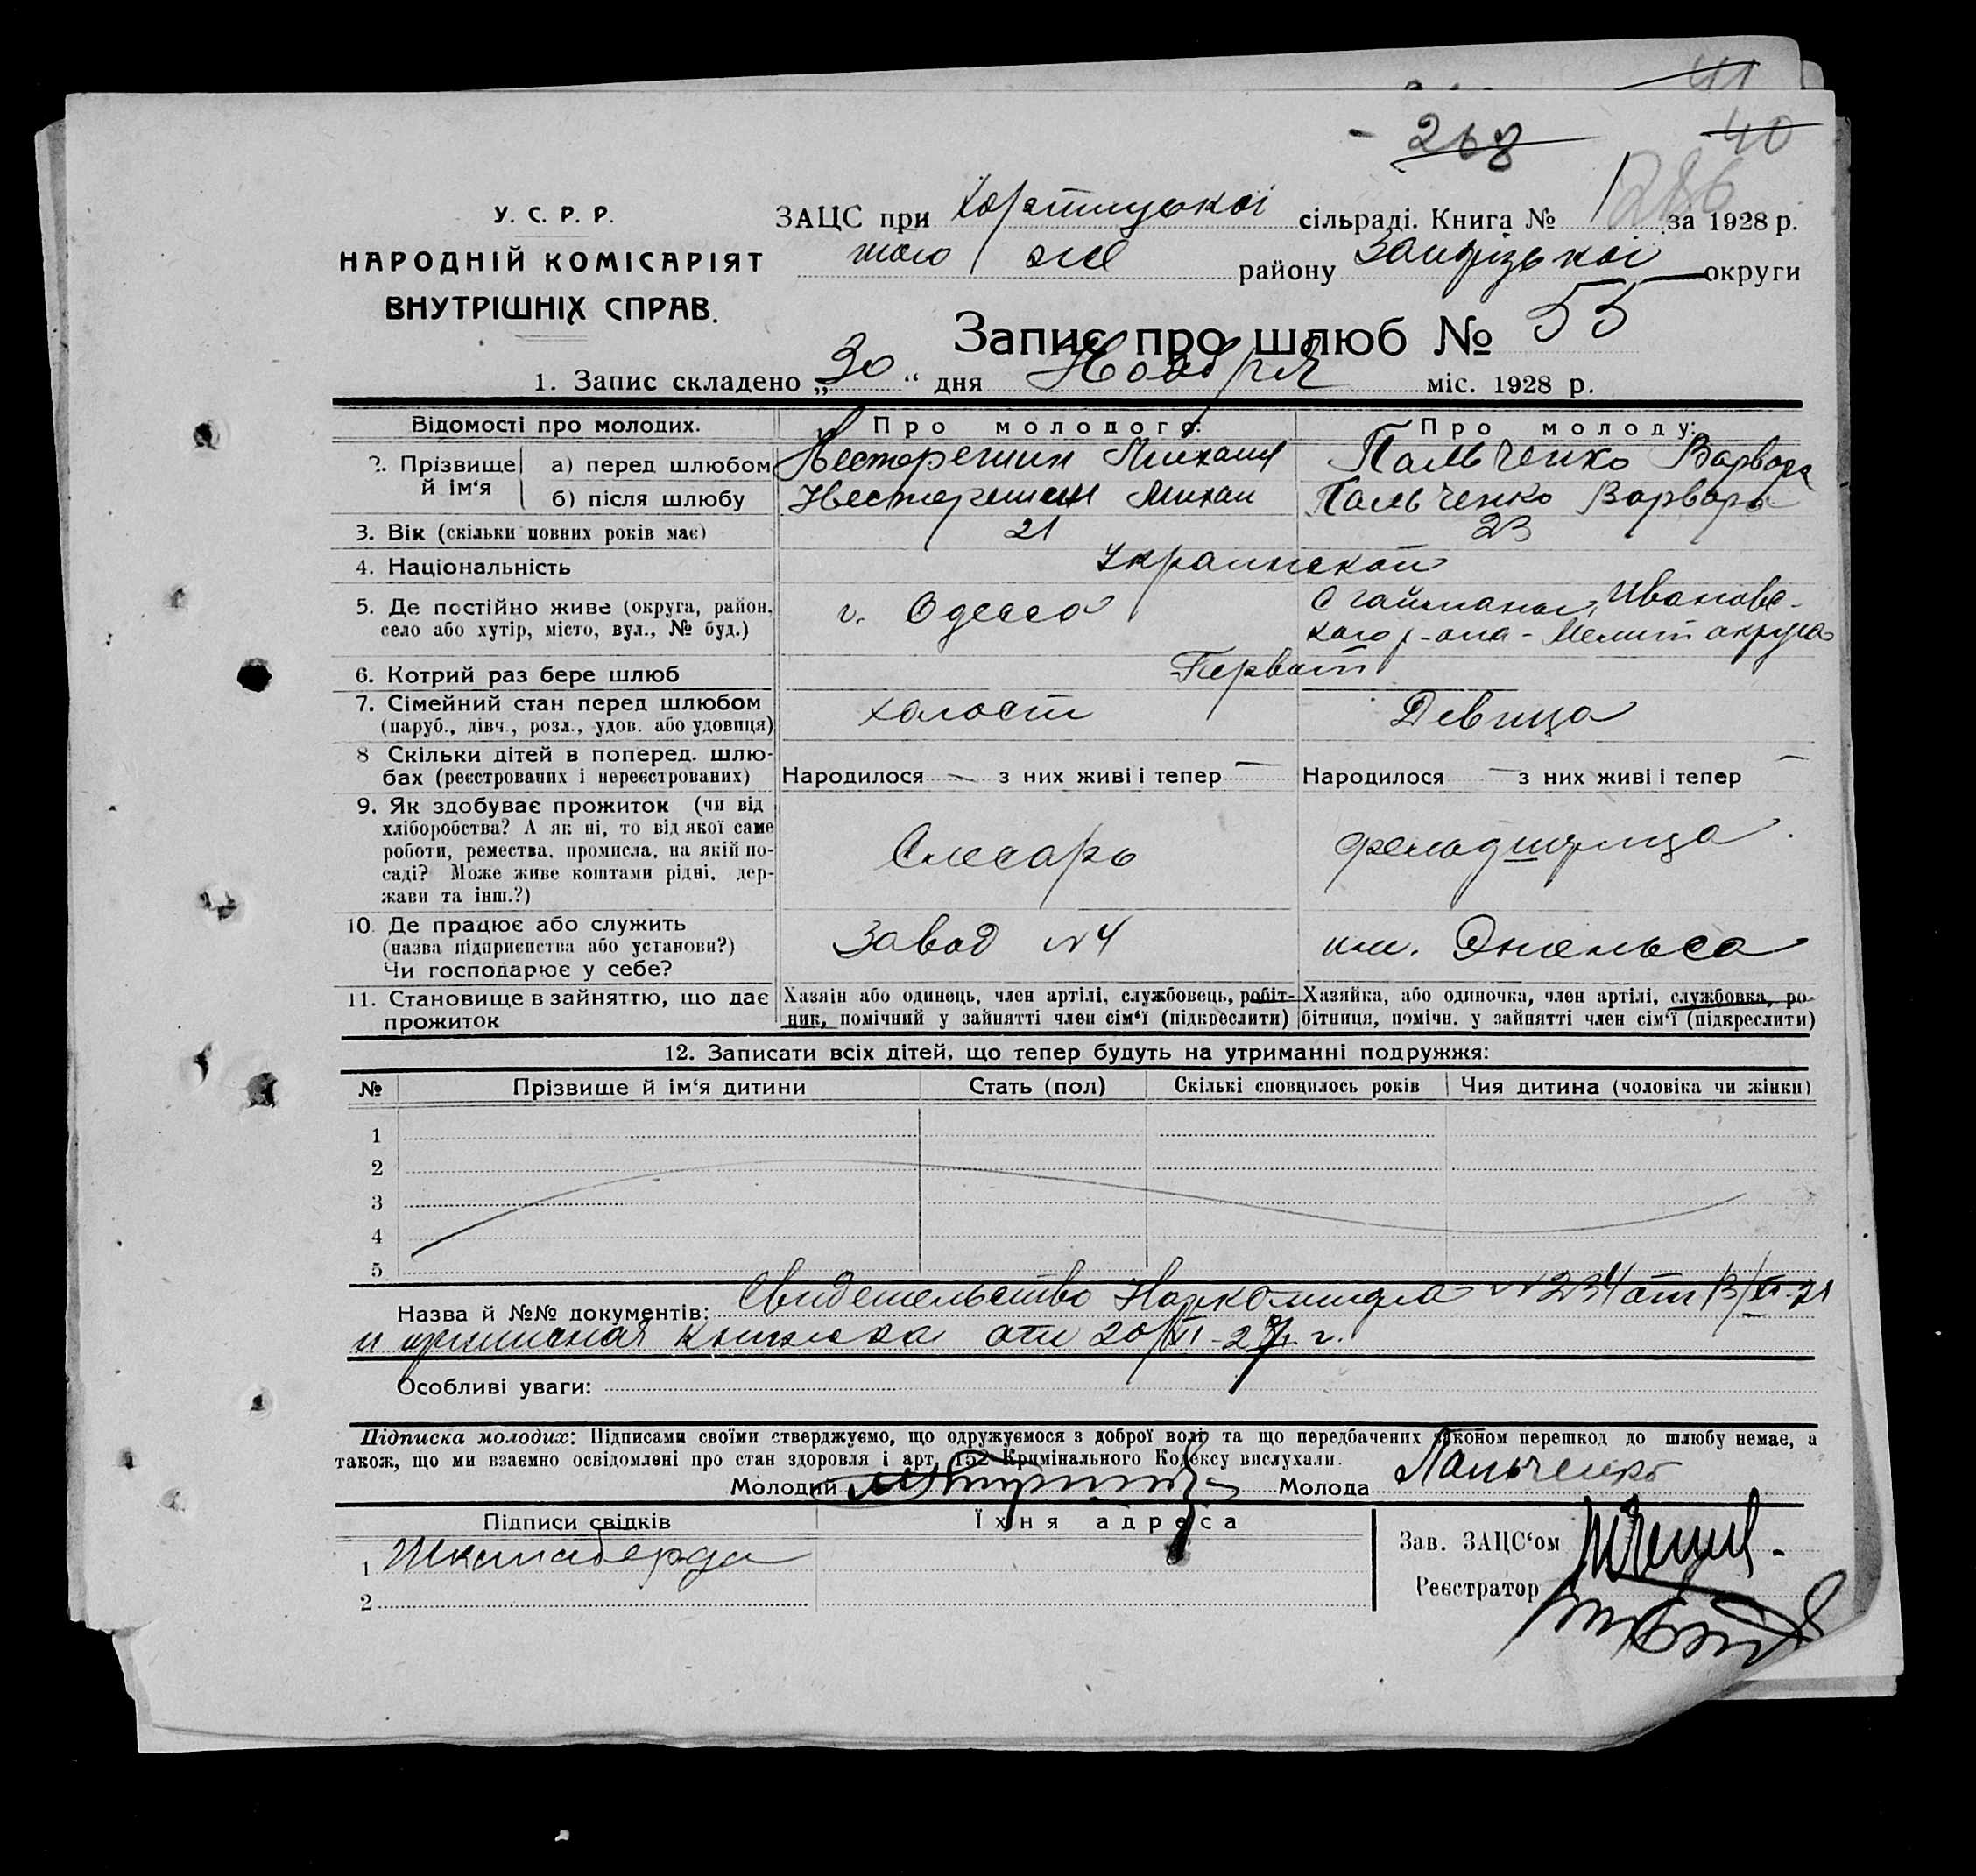 41
- 268 40
286
У. С. Р. Р.
НАРОДНІЙ КОМІСАРІЯТ
ВНУТРІШНІХ СПРАВ.
ЗАЦС при Хортицької сільраді. Книга № 1 за 1928 р.
того же району Запорізької округи
Запис про шлюб № 55
1. Запис складено „30“ дня Ноября міс. 1928 р.
Відомості про молодих. Про молодого: Про молоду:
2. Прізвище й ім‘я
а) перед шлюбом Нестерешин Михаил Пальченко Варвара
б) після шлюбу Нестерешин Михаил Пальченко Варвара
3. Вік (скільки повних років має) 21 23
4. Національність Украинской
5. Де постійно живе (округа, район, село або хутір, місто, вул., № буд.) г. Одесса
С Гаймана, Ивановс-
кого р-она - Мелит округа
6. Котрий раз бере шлюб Первый
7. Сімейний стан перед шлюбом холост Девица
(паруб., дівч., розл., удов. або удовиця)
8 Скільки дітей в поперед. шлю-
бах (реєстрованих і нереєстрованих) Народилося — з них живі і тепер — Народилося — з них живі і тепер —
9. Як здобуває прожиток (чи від
хліборобства? А як ні, то від якої саме
роботи, ремества, промисла, на якій по-
саді? Може живе коштами рідні, дер-
жави та інш.?) Слесарь фельдшерица
10. Де працює або служить
(назва підприємства або установи?)
Чи господарює у себе? Завод №4 им. Энгельса
11. Становище в зайняттю, що дає
прожиток
Хазяїн або одинець, член артілі, службовець, робіт-
ник, помічний у зайнятті член сім‘ї (підкреслити)
Хазяйка, або одиночка, член артілі, службовка, ро-
бітниця, помічн. у зайнятті член сім‘ї (підкреслити)
12. Записати всіх дітей, що тепер будуть на утриманні подружжя:
№ Прізвище й ім‘я дитини Стать (пол) Скількі сповнилось років Чия дитина (чоловіка чи жінки)
1
2
3
4
5
Назва й №№ документів: Свидетельство № 234 от 13/XI-
и приписная книжка от 20/XI-27 г.
Особливі уваги:
Підписка молодих: Підписами своїми стверджуємо, що одружуємося з доброї волі та що передбачених законом перешкод до шлюбу немає, а
також, що ми взаємно освідомлені про стан здоровля і арт. 152 Кримінального Кодексу вислухали.
Молодий Молода Пальченко
Підписи свідків Їхня адреса
1
2
Зав. ЗАЦС‘ом
Реєстратор